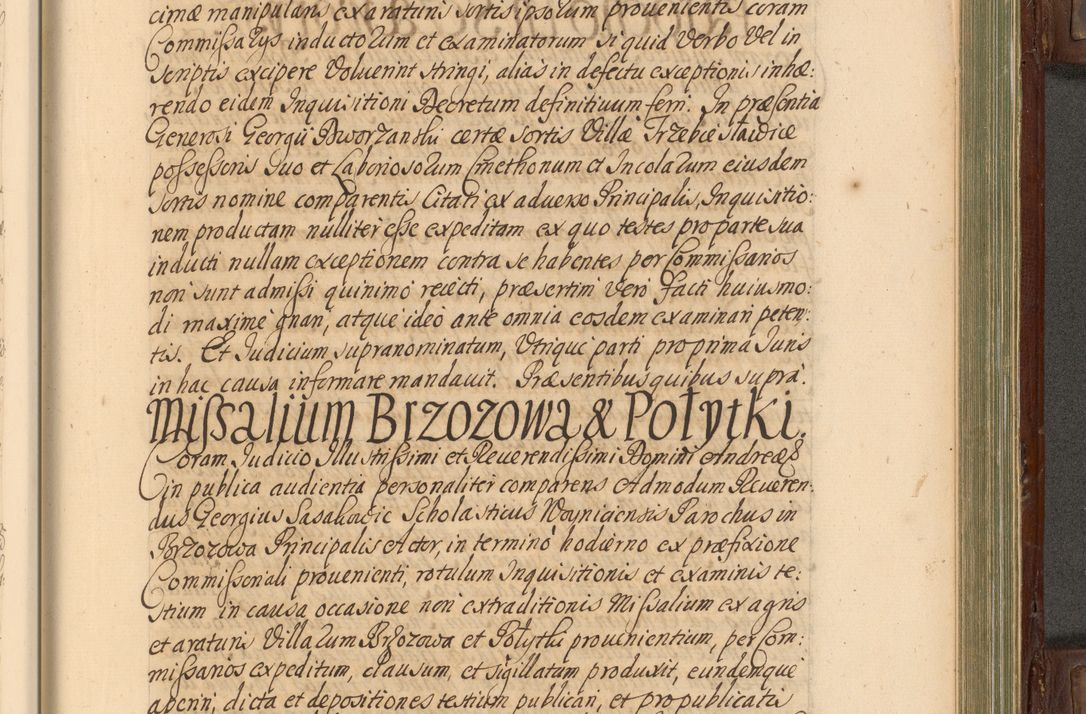 cimæ manipularis ex araturis sortis ipsorum provenientis coram
Commissarys inductorum et examinatorum si quid Verbo Vel in
Scriptis excipere Voluerint stringi, alias in defectu exceptionis inhæ:
rendo eidem Inquisitioni Decretum definitivum ferri. In præsentia
Generosi Georgii Dworzanski certæ sortis Villæ Trzebieslawice
possessoris suo et Laboriosorum Cmethonum et Incolarum eiusdem
sortis nomine comparentis Citati ex adverso Principalis, Inquisitio:
nem productam nulliter esse expeditam ex quo testes pro parte sua
inducti nullam exceptionem contra se habentes per Commissarios
non sunt admissi quinimo reiecti, præsertim Veri facti huiusmo:
di maxime gnari, atque ideo ante omnia eosdem examinari peten:
tis. Et Iudicium supranominatum, Utrique parti pro prima Iuris
in hac causa informare mandavit. Præsentibus quibus supra.
Missalium Brzozowa & Połytki.
Coram Iudicio Illustrissimi et Reverendissimi Domini Andreæ &
in publica audientia personaliter comparens Admodum Reveren:
dus Georgius Sasakowic Scholasticus Woyniciensis Parochus in
Brzozowa Principalis Actor, in termino hodierno ex præfixione
Commissoriali provenienti, rotulum Inquisitionis et examinis te:
stium in causa occasione non extraditionis Missalium ex agris
et araturis Villarum Brzozowa et Połytki provenientium, per Com:
missarios expeditum, clausum, et sigillatum produxit, eundemque
aperiri, dicta et depositiones testium publicari, et pro publicatis